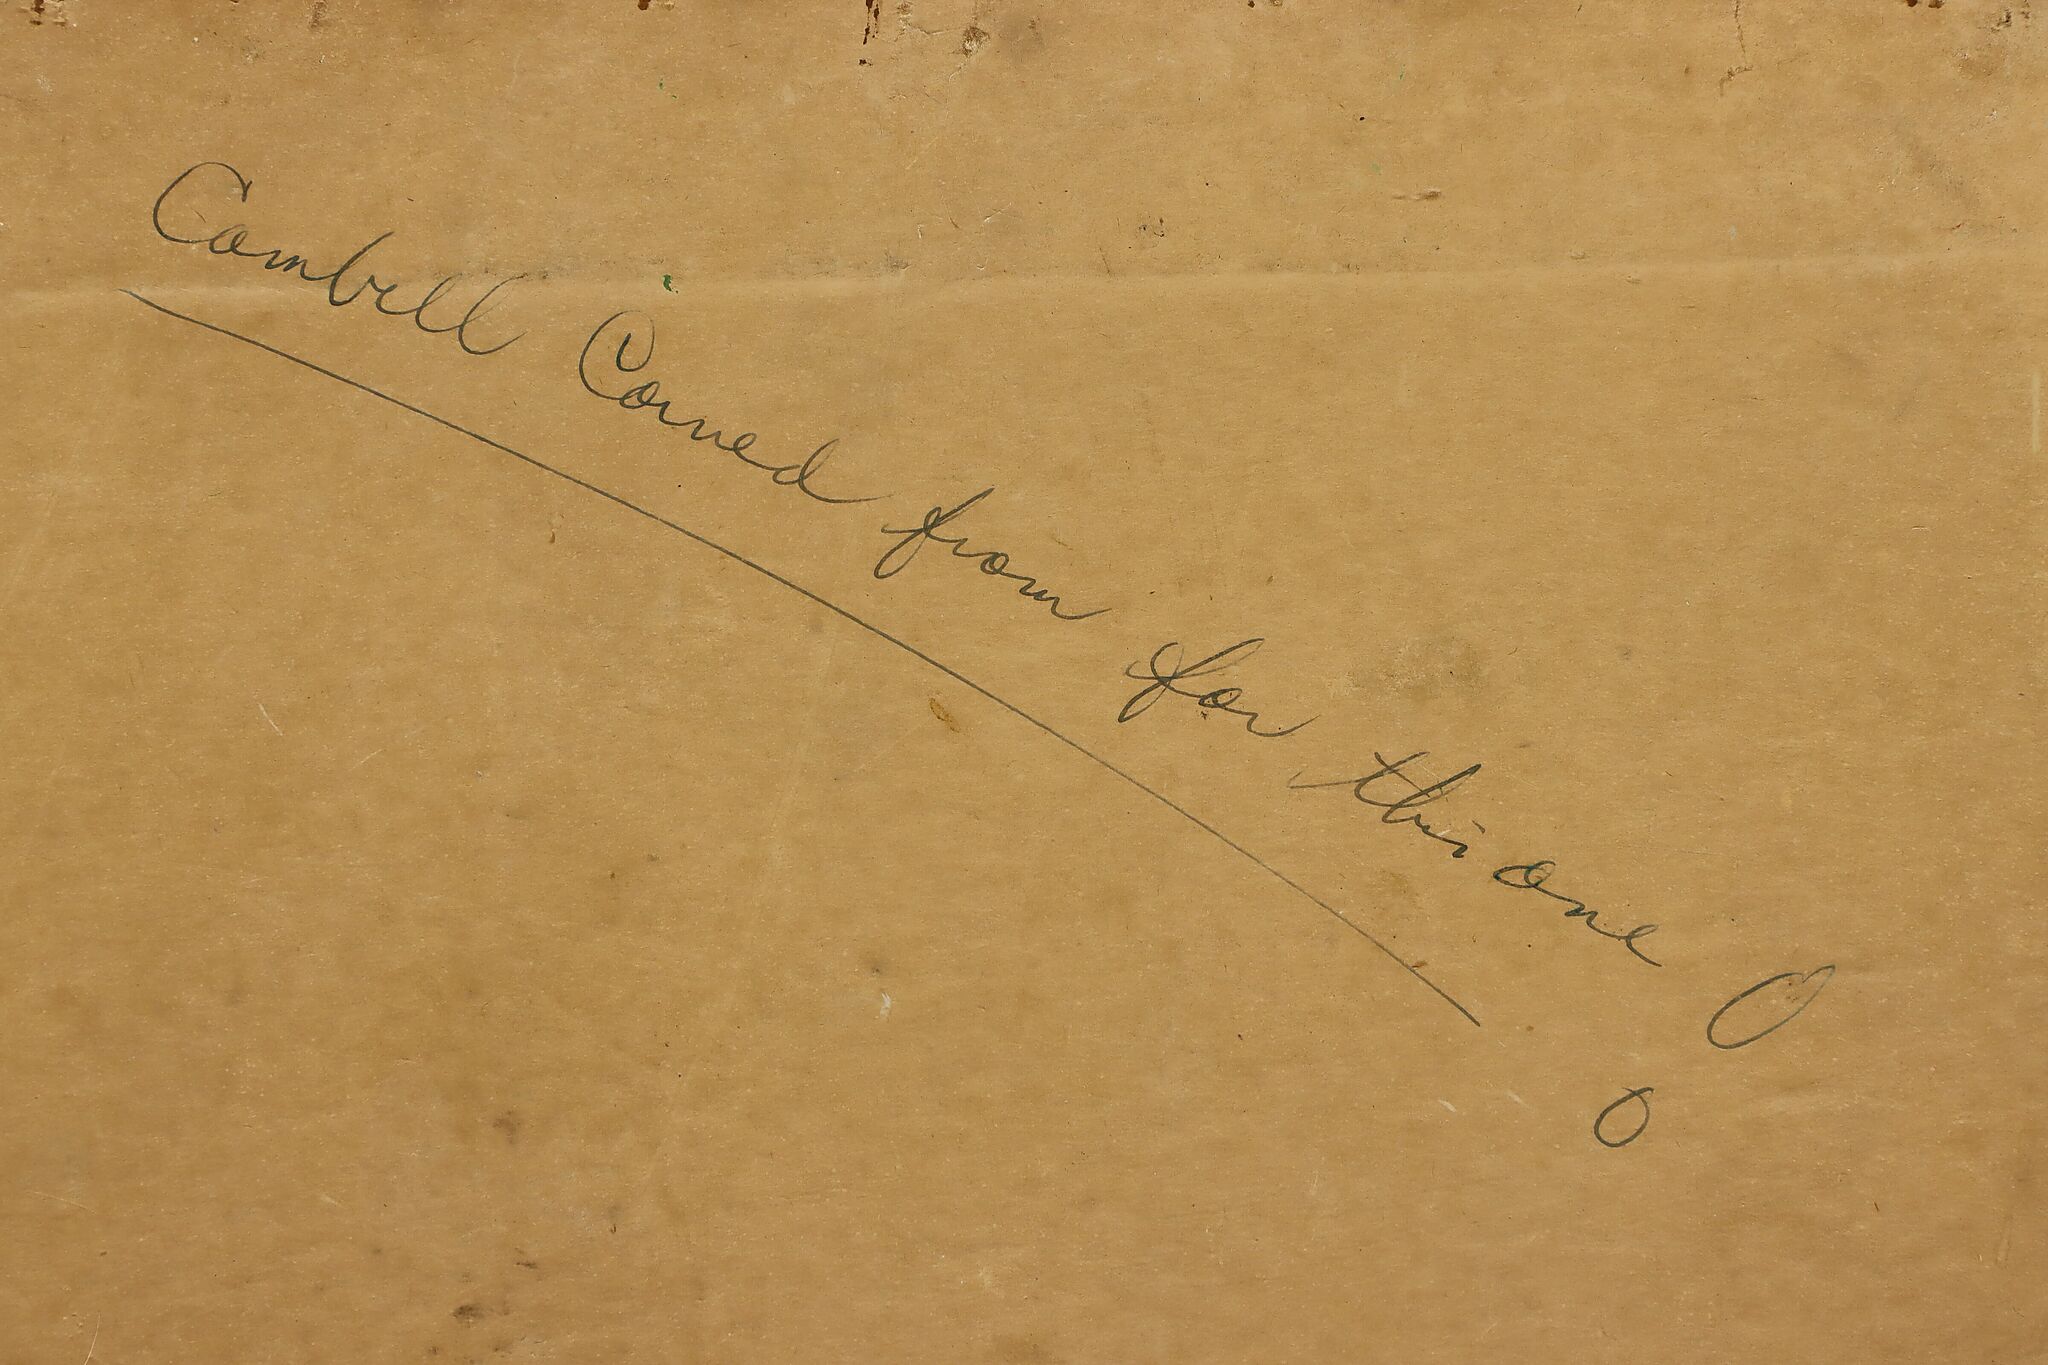 Cambell Corned from for this one O
o